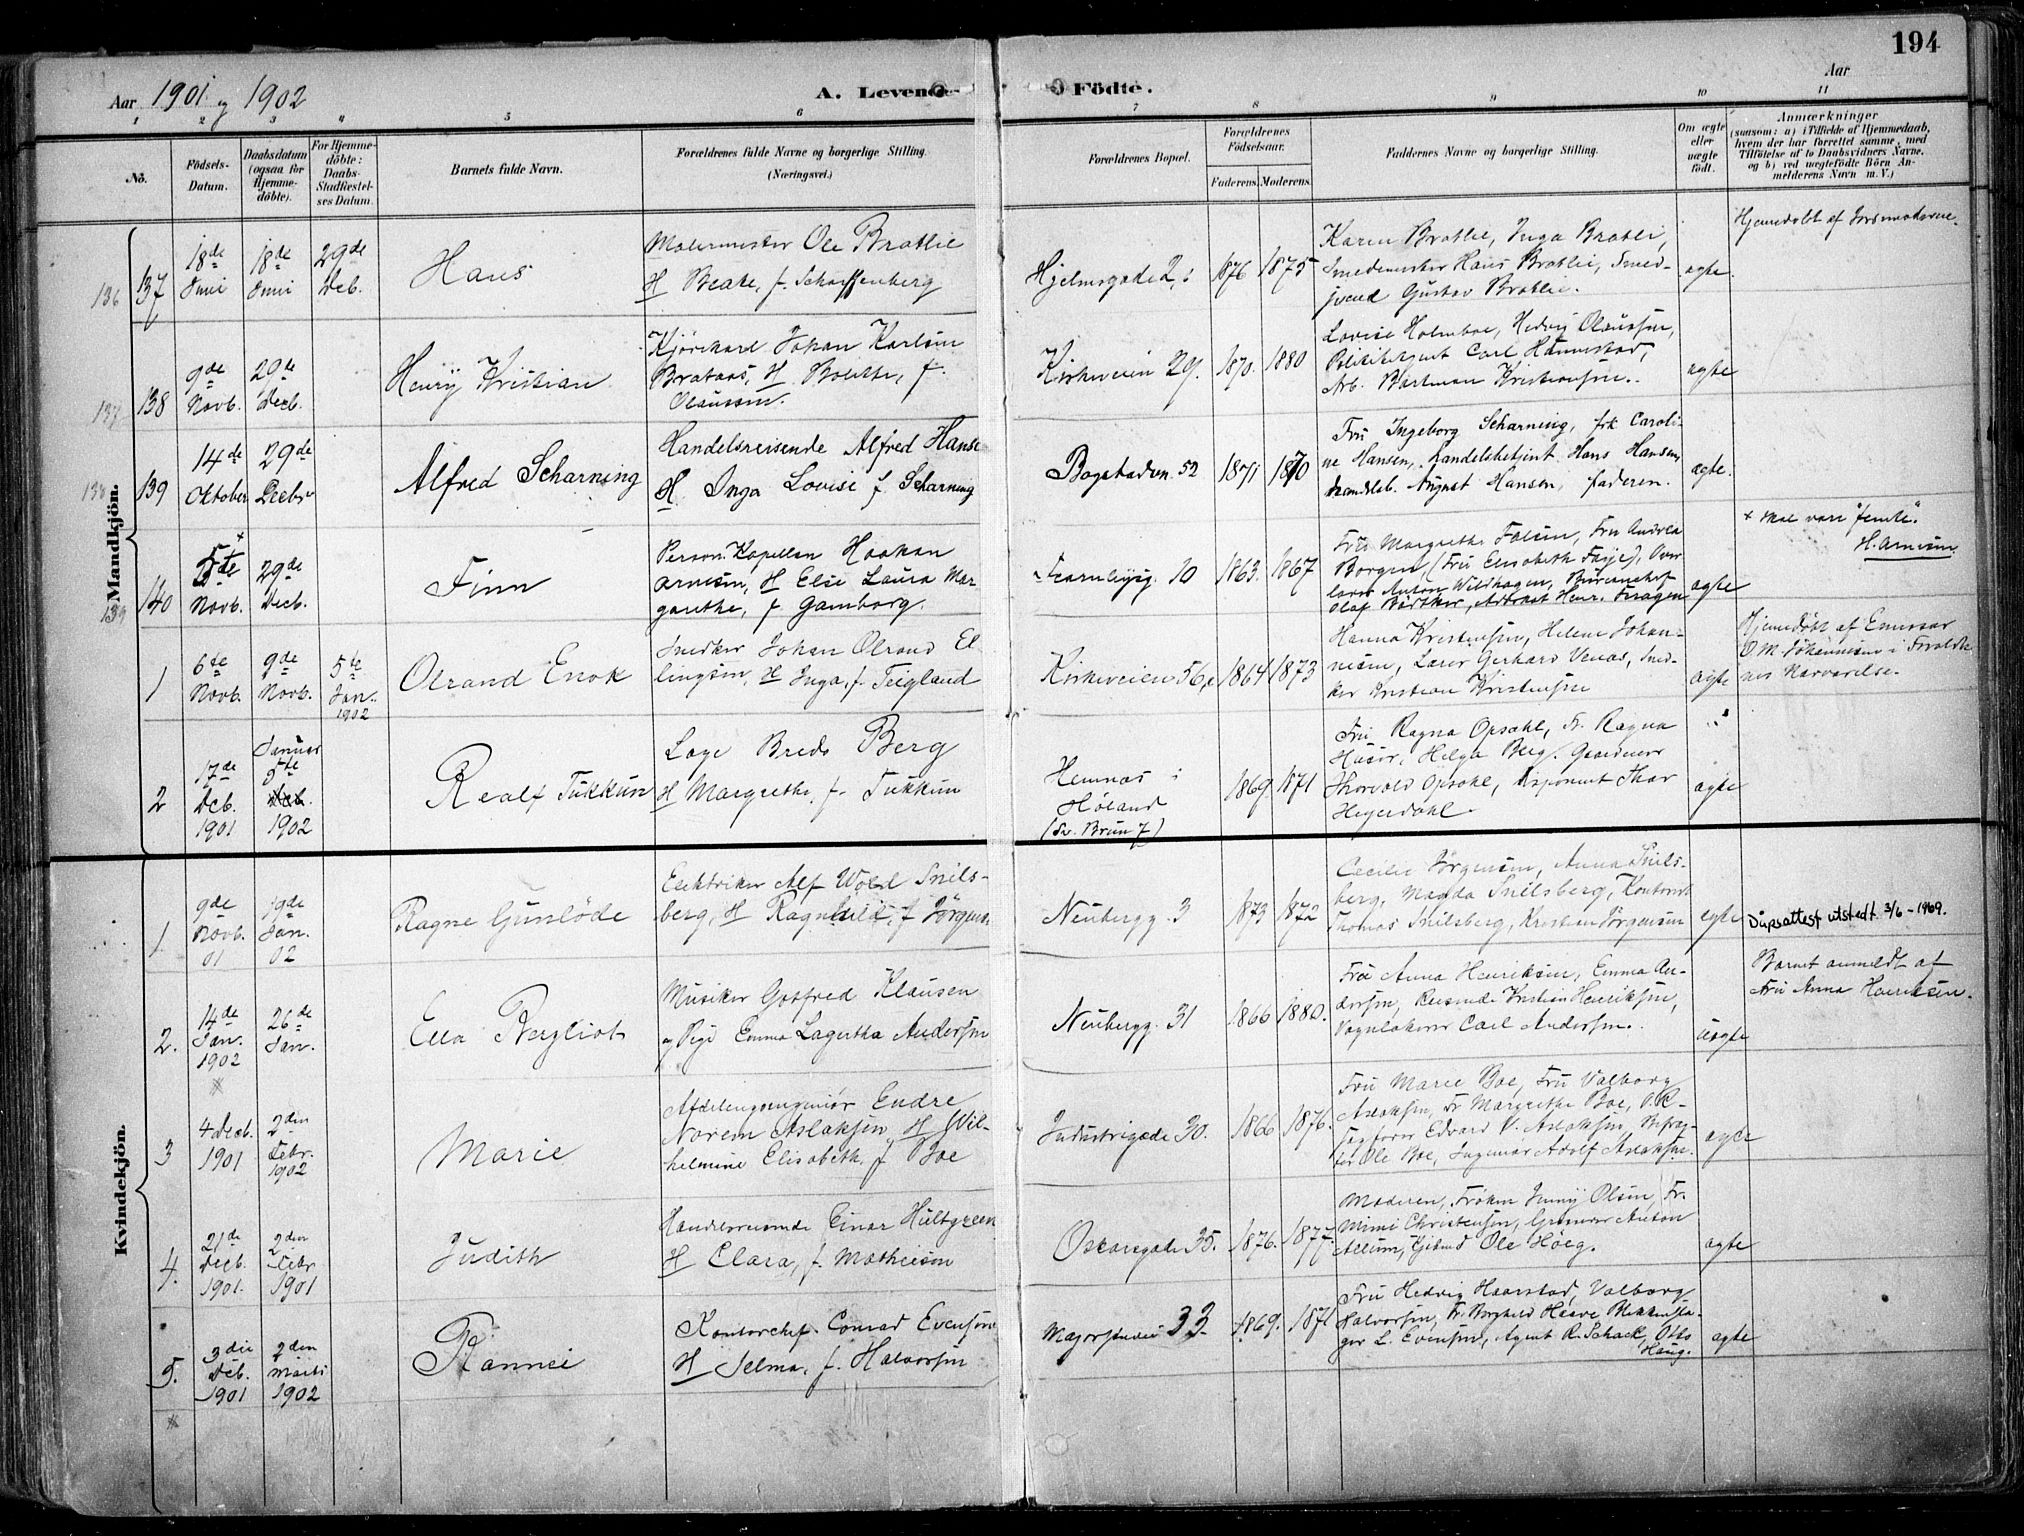 194
Aar 1901 og 1902
A. Levende Födte.
Aar
1 2 3 4 5 6 7 8 9 10 11
No.
Födsels-Datum.
Daabsdatum (ogsaa for Hjemmedöbte).
For Hjemmedöbte: Daabs-Stadfæstelses Datum.
Barnets fulde Navn.
Forældrenes fulde Navne og borgerlige Stilling.
(Næringsvei.)
Forældrenes Bopæl.
Forældrenes Födselsaar.
Faderens. Moderens.
Faddernes Navne og borgerlige Stilling.
Om ægte eller uægte födt.
Anmærkninger
(saasom: a) i Tilfælde af Hjemmedaab, hvem der har forrettet samme, med Tilföielse af to Daabsvidners Navne, og b) ved uægtefödte Börn Anmelderens Navn m. V.)
Mandkjön.
136 137
18de Juni
18de Juni
29de Deb.
Hans
Malermester Ole Bratlie
H Beate, f. Scharffenberg
Hjelmsgade 2,
1876 1875
Karen Bratlie, Inga Bratli,
Smedemester Hans Bratlie, Smed-
svend Gustav Bratlie.
ægte.
Hjemedøbt af Jordmoderen.
137 138
9de Novb.
29de Decb.
Henry Kristian
Kjørekarl Johan Karlsen
Brataas, H Bolette, f.
Olaussen.
Kirkeveien 29.
1870. 1880
Lovise Holmboe, Hedvig Olaussen,
Politibetjent Carl Hannestad,
Arb. Bartman Kristiansen.
ægte
138 139
14de Oktober
29de Decbr
Alfred Scharning
Handelsreisende Alfred Hanse
H. Inga Lovise f. Scharning
Bogstadvn. 52
1871 1870
Fru Ingeborg Scharning, frk Caroli-
ne Hansen, handelsbetjent Hans Hansen
handelsb. August Hansen, faderen.
ægte.
139 140
5te Novb.
29de Decb.
Finn
Person. Kapellan Haakon
Arnesen, H Else Laura Mar-
garethe, f. Gamborg.
Fearnleysg. 10
1863. 1867
Fru Margrethe Folsen, Fru Andrea
Borgen, (Fru Elisabeth Faye), Over-
lærer Anton Wildhagen, Bureauchef
Olaf Bødtker, Advokat Henr.
ægte
× skal være "femte".
H. Arnesen.
1
6te Novb.
9de Novb.
5te Jan. 1902
Olrand Enok
Snedker Johan Olrand El-
lingsen, H Inga, f. Teigland
Kirkeveien 56,
1864 1873
Hanna Kristensen, Helene Johan-
nesen, Lærer Gerhard Venas, Sned-
ker Kristian Kristensen
ægte
Hjemmedøbt af Emissær
O. M. Johannesen i Foreldre-
nes Nærværelse.
2
17de Deb. 1901
Januar 5te Deb. 1902
Realf Tukkun
Læge Brede Berg
H Margrethe, f. Tukkun
Hemnæs i
Høland
(Sv. Brun 7)
1869. 1871
Fru Ragna Opsahl, Fr. Ragna
Husør, Helga Berg, Gaardeier
Thorvald Opsahl, Disponent Thor
Heyerdahl.
ægte
Kvindekjön.
1
9de Novb. 01
19de Jan. 02
Ragne Gunløde
Elektriker Alf Wold Snils-
berg, H Ragnhild, f. Jørgens
Neubergg. 3
1873 1872
Cecilie Jørgensen, Anna Snils-
berg, Magda Snilsberg, Kontorist
Thomas Snilsberg, Kristian Jørgensen
ægte
Dåpsattest utstedt 3/6-1969.
2.
14de Jan. 1902
26de Jan.
Ella Bergliot
Musiker Gotfred Klausen
og Pige Emma Lagertha Andersen
Neubergg. 31
1866 1880.
Fru Anna Henriksen, Emma An-
dersen, Reisende Kristian Henriksen,
Vognlakerer Carl Andersen.
uægte
Barnet anmeldt af
Fru Anna Henriksen.
3
4 Decb. 1901
2den Febr. 1902
Marie
Afdelingsingeniør Endre
Norem Aslaksen H Wil-
helmine Elisabeth f Boe
Industrigade 30.
1866 1876.
Fru Marie Boe, Fru Valborg
Aslaksen, Fr Margrethe Boe, O.R-
sagfører Edvard V. Aslaksen,
Ole Boe, Ingeniør Adolf Aslaksen.
ægte
4.
21de Decb. 1901.
2den Febr 1901
Judith
Handelsreisende Einar Hultgreen
H Clara, f. Mathiesen
Oscarsgade 35.
1876. 1877.
Moderen, Frøken Jenny Olsen, Fr.
Mimi Christensen, Grosserer Anton
Allum, Ole Høeg.
ægte
5.
3die Deb. 1901
2den Marts 1902
Rannei
Kontorchef Conrad Evensen
H Selma, f. Halvorsen
Majorstuveien 33
1869. 1871
Fru Hedvig Haarstad, Valborg
Halvorsen, Fr. Borghild Haave Blikkensla-
ger L. Evensen, Agent R. Schack, Otto
Haug.
ægte